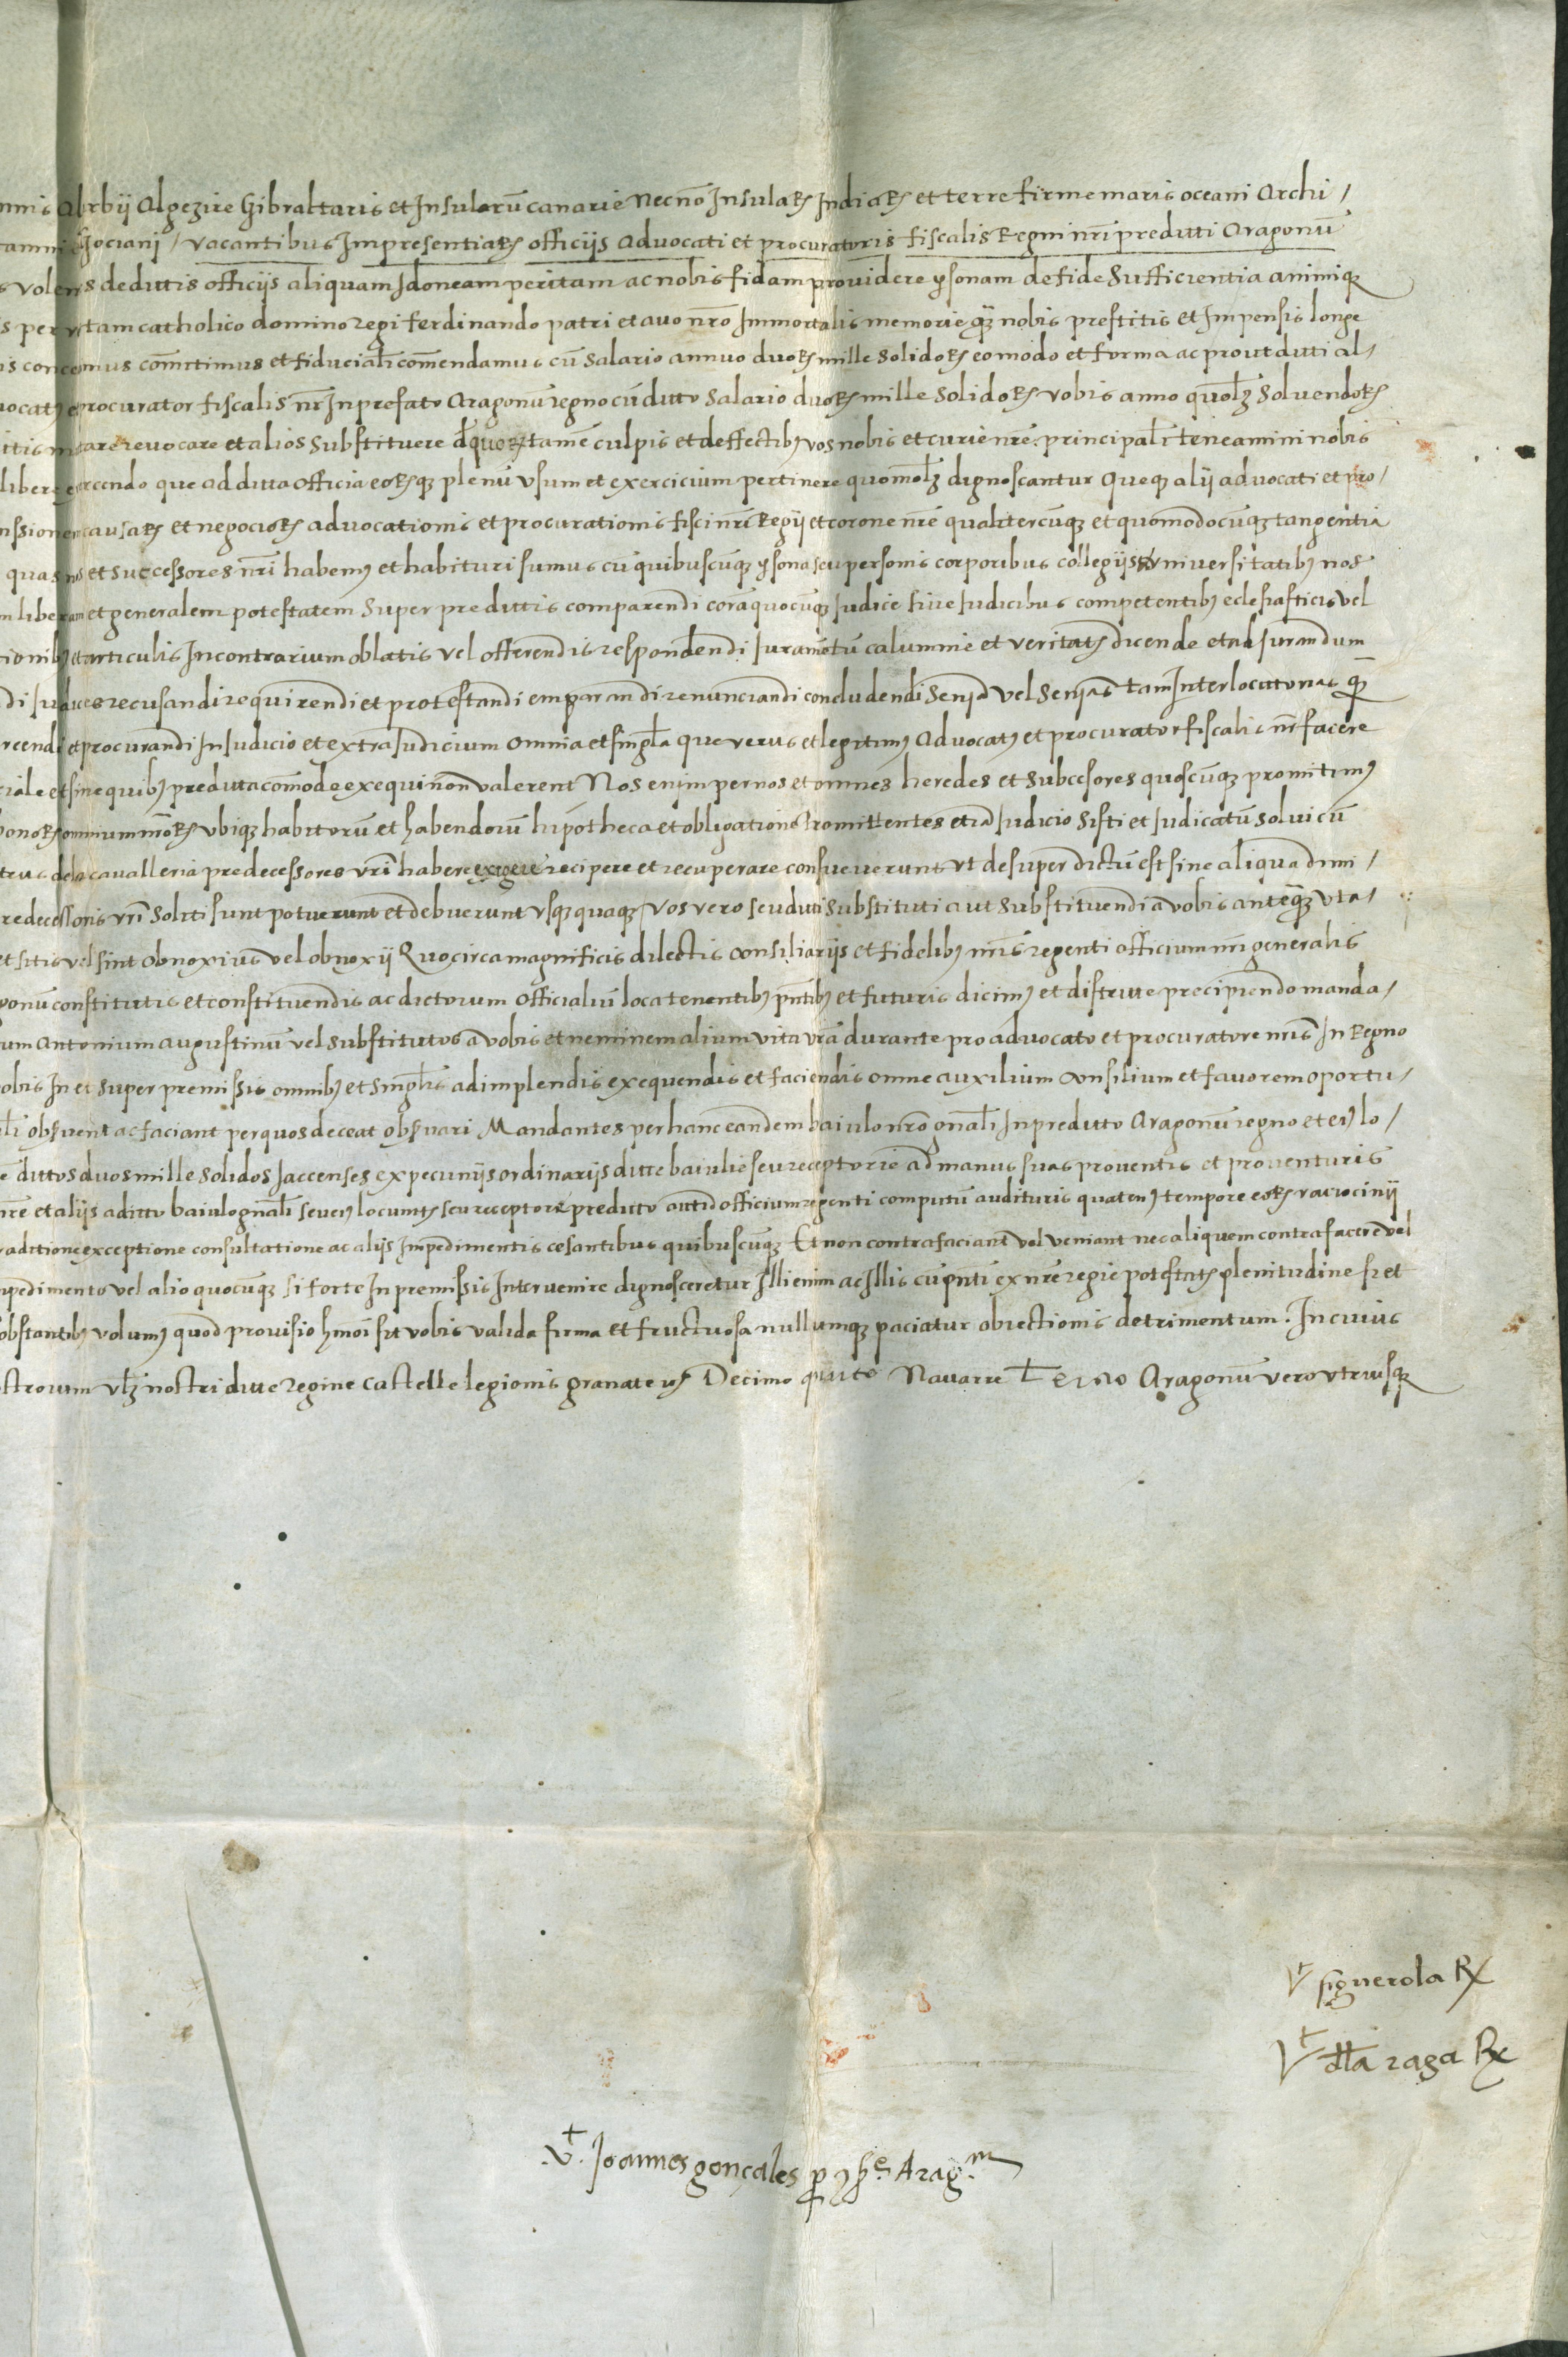 Algezire Gibraltaris et Insularū canarie Necnō Insulaꝝ Indiaꝝ et terre firme maris oceani Archi/
Gociani / vacantibus Impresentiaꝝ officijs Advocati et procuratoris fiscalis Regni nr̄i predicti Aragonū
volens de dictis officijs aliquam Idoneam peritam ac nobis fidam providere ꝑsonam de fide Sufficientia animiqꝫ
tam catholico domino regi ferdinando patri et avo nr̄o Immortalis memorie qꝫ nobis prestitis et Impensis longe
com̄ittimus et fiducialr̄ com̄endamus cū Salario annuo duoꝝ mille Solidoꝝ eo modo et forma ac prout dicti al/
procurator fiscalis nr̄ In prefato Aragonū regno cū dicto Salario duoꝝ mille Solidoꝝ vobis anno quolꝫ Solvendoꝝ
revocare et alios Substituere d quoꝝ tamē culpis et deffectibꝰ vos nobis et curie nr̄e principalr̄ teneamini nobis
que ad dicta officia eoꝝqꝫ plenū vsum et exercicium pertinere quomōlꝫ dignoscantur Queqꝫ alij advocati et pro/
causaꝝ et negocioꝝ advocationis et procurationis fisci nr̄i Regij et corone nr̄e qualitercūqꝫ et quomodocūqꝫ tangentia
quas nos et successores nr̄i habemꝰ et habituri sumus cū quibuscūqꝫ ꝑsona seu personis corporibus collegijs vniversitatibꝰ nos
et generalem potestatem Super predictis comparendi corā quocūqꝫ Iudice sive Iudicibus competentibꝰ eclesiasticis vel
articulis In contrarium oblatis vel offerendis respondendi Iuramētū calumnie et veritatꝭ dicende et ad Iurandum
recusandi requirendi et protestandi emparandi renunciandi concludendi Senīā vel Senīās tam Interlocutorias qꝫ
et procurandi In Iudicio et extra Iudicium omnia et singl̄a que verus et legitimꝰ Advocatꝰ et procurator fiscalis nr̄ facere
et sine quibꝰ predicta comode exequi nōn valerent Nos enim per nos et omnes heredes et Subcesores quoscūqꝫ promitimꝰ
omnium nr̄oꝝ vbiqꝫ habitorū et habendorū hipotheca et obligatione Promittentes etiā Iudicio Sisti et Iudicatū Solvi cū
dela cavalleria predecessores vr̄i habere exigere recipere et recuperare consueverunt vt desuper dictū est sine aliqua dimi/
vr̄i Soliti sunt potuerunt et debuerunt vsqꝫquaqꝫ / vos vero seu dicti Substituti aut Substituendi a vobis anteqꝫ vta/
et sitis vel sint obnoxius vel obnoxij Quocirca magnificis dilectis consiliarijs et fidelibꝰ nr̄is regenti officium nr̄i generalis
constitutis et constituendis ac dictorum officialiū locatenentibꝰ pn̄tibꝰ et futuris dicimꝰ et districte precipiendo manda/
Antonium augustinū vel Substitutos a vobis et neminem alium vita vr̄a durante pro advocato et procuratore nr̄is In Regno
In et Super premissis omnibꝰ et singl̄is adimplendis exequendis et faciendis omne auxilium consilium et favorem oportu/
obsvent ac faciant per quos deceat obsvari Mandantes per hanc eandem baiulo nr̄o gn̄ali In predicto Aragonū regno et eiꝰ lo/
dictos duos mille Solidos Iaccenses ex pecunijs ordinarijs dicte baiulie seu receptorie ad manus suas proventis et proventuris
nr̄e et alijs a dicto baiulo gn̄ali seu eiꝰ locumtꝭ seu receptore predicto aut id officium regenti computū audituris quatenꝰ tempore eoꝝ raciocinij
exceptione consultatione ac alijs Impedimentis cesantibus quibuscūqꝫ Et non contrafaciant vel veniant nec aliquem contrafacere vel
vel alio quocūqꝫ si forte In premissis Intervenire dignosceretur Illi enim ac Illis cū pn̄ti ex nr̄e regie potestatꝭ plenitudine fiet
obstantibꝰ volumꝰ quod provisio hmōi sit vobis valida firma et fructuosa nullumqꝫ paciatur obiectionis detrimentum. In cuius
vlꝫ nostri dicte regine Castelle legionis granate Decimo quito Navarre Aragonū vero vtriusqꝫ
Vt figuerola Rx
Vt Rx
Vt. Ioannes gonçales Arag.